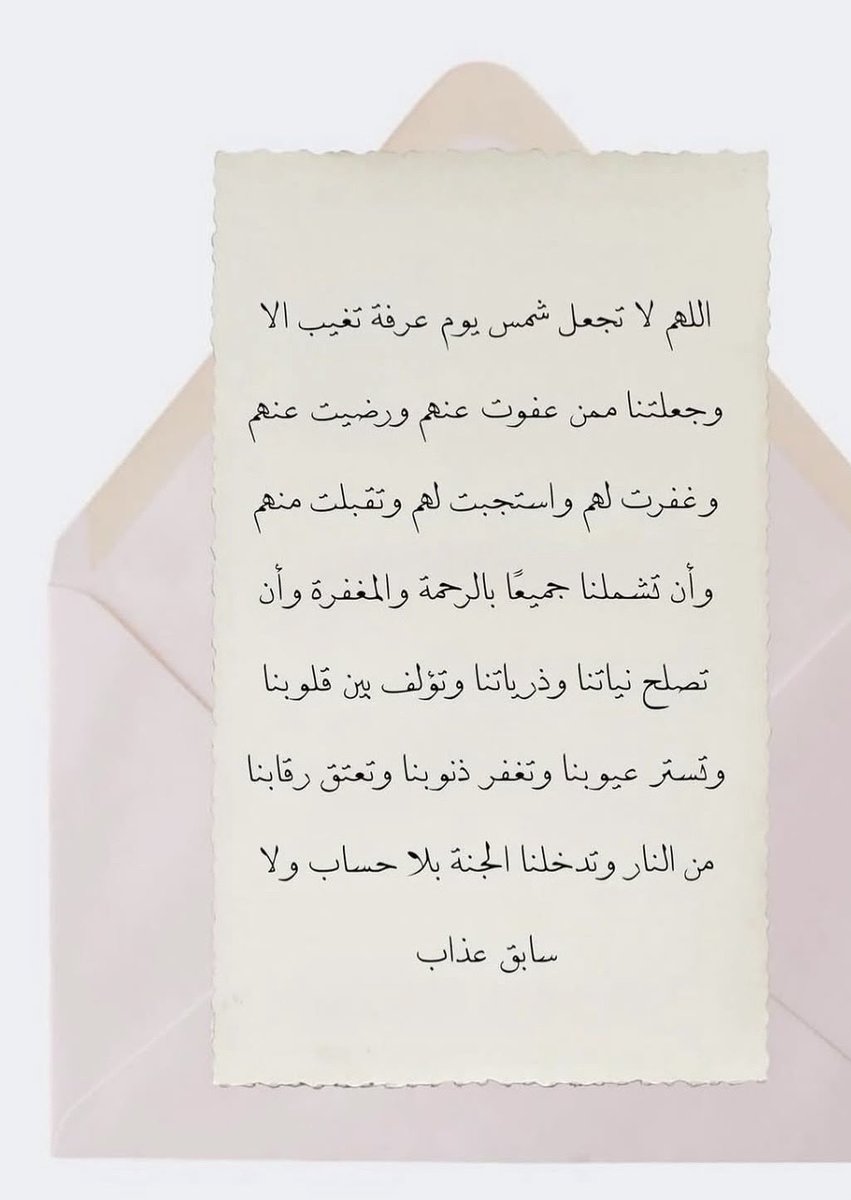 اللهم لا تجعل شمس يوم عرفة تغيب الا
وجعلتنا ممن عفوت عنهم ورضيت عنهم
وغفرت لهم واستجبت لهم وتقبلت منهم
وأن تشملنا جميعًا بالرحمة والمغفرة وأن
تصلح نياتنا وذرياتنا وتؤلف بين قلوبنا
وتستر عيوبنا وتغفر ذنوبنا وتعتق رقابنا
من النار وتدخلنا الجنة بلا حساب ولا
سابق عذاب